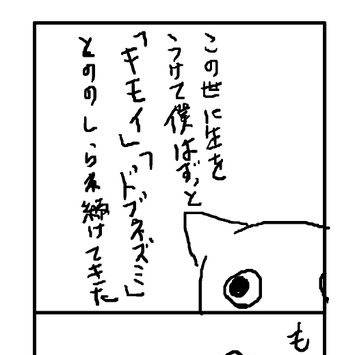 この世に生を
うけて僕はずっと
「キモイ」「ドブネズミ」
とののしられ続けてきた
も